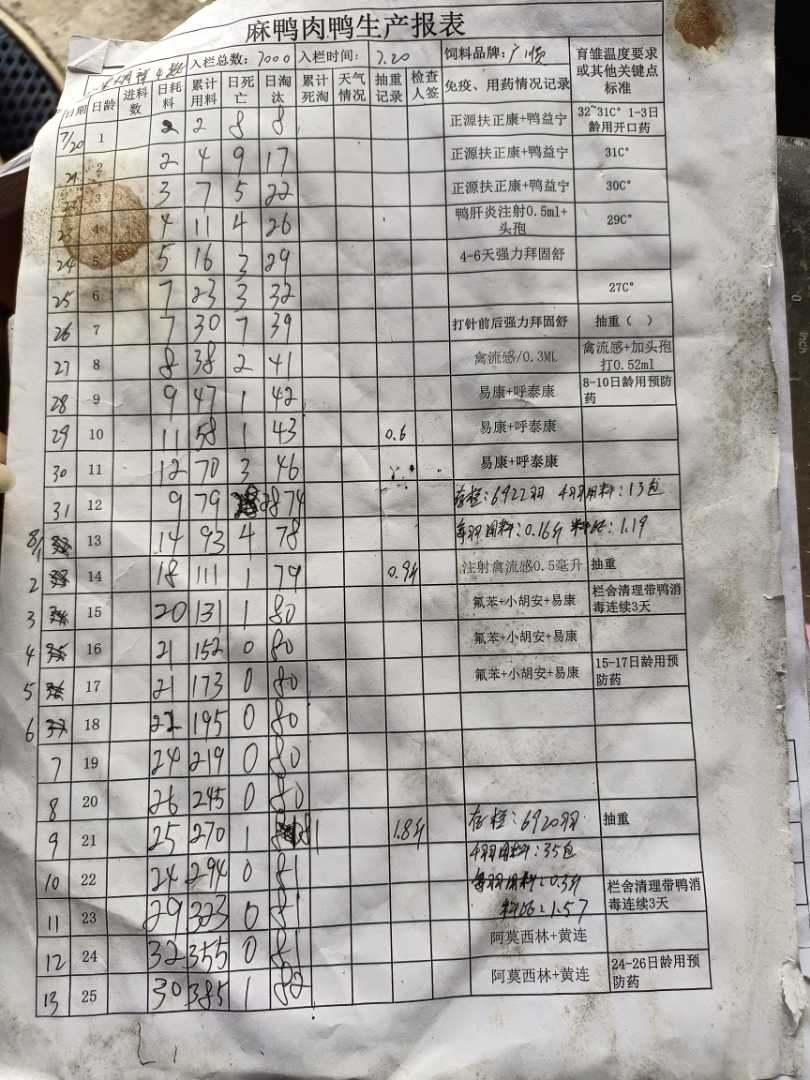 麻鸭肉鸭生产报表
入栏总数：7000 入栏时间：7.20 饲料品牌：广 育雏温度要求或其他关键点标准
日期 日龄 进料数 日耗料 累计用料 日死亡 日淘汰 累计死淘 天气情况 抽重记录 检查人签 免疫、用药情况记录
7/20 1 2 2 8 8 正源扶正康+鸭益宁 32~31C° 1-3日龄用开口药
21 2 2 4 9 17 正源扶正康+鸭益宁 31C°
22 3 3 7 5 22 正源扶正康+鸭益宁 30C°
23 4 4 11 4 26 鸭肝炎注射0.5ml+头孢 29C°
24 5 5 16 3 29 4-6天强力拜固舒
25 6 7 23 3 32 27C°
26 7 7 30 7 39 打针前后强力拜固舒 抽重（ ）
27 8 8 38 2 41 禽流感/0.3ML 禽流感+加头孢打0.52ml
28 9 9 47 1 42 易康+呼泰康 8-10日龄用预防药
29 10 11 58 1 43 0.6 易康+呼泰康
30 11 12 70 3 46 易康+呼泰康
31 12 9 79 28 74 存栏：6922羽 用料：13包
8/1 13 14 93 4 78 每羽用料：0.16斤 料比：1.19
2 14 18 111 1 79 0.9斤 注射禽流感0.5毫升 抽重
3 15 20 131 1 80 氟苯+小胡安+易康 栏舍清理带鸭消毒连续3天
4 16 21 152 0 80 氟苯+小胡安+易康
5 17 21 173 0 80 氟苯+小胡安+易康 15-17日龄用预防药
6 18 22 195 0 80
7 19 24 219 0 80
8 20 26 245 0 80
9 21 25 270 1 81 1.8斤 存栏：6920羽 抽重
10 22 24 294 0 81 用料：35包
每羽用料：0.5斤
11 23 29 323 0 81 料比：1.57 栏舍清理带鸭消毒连续3天
12 24 32 355 0 81 阿莫西林+黄连
13 25 30 385 1 82 阿莫西林+黄连 24-26日龄用预防药